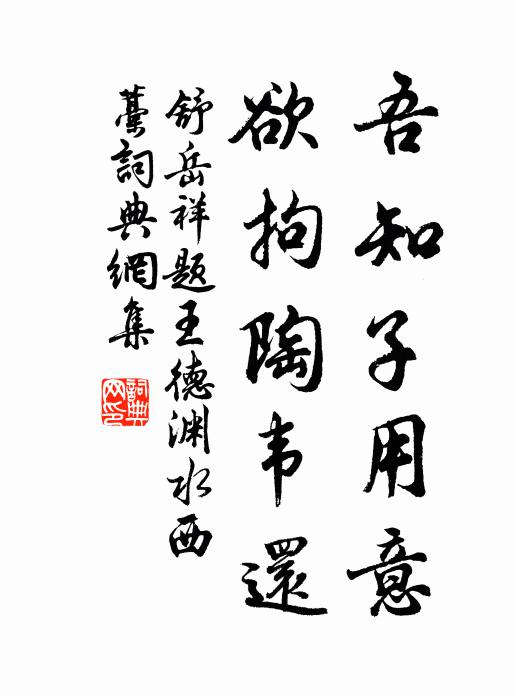 吾知子用意
欲拘陶韦還
舒岳祥题王德渊水西
藁詞典網集
詞典网印